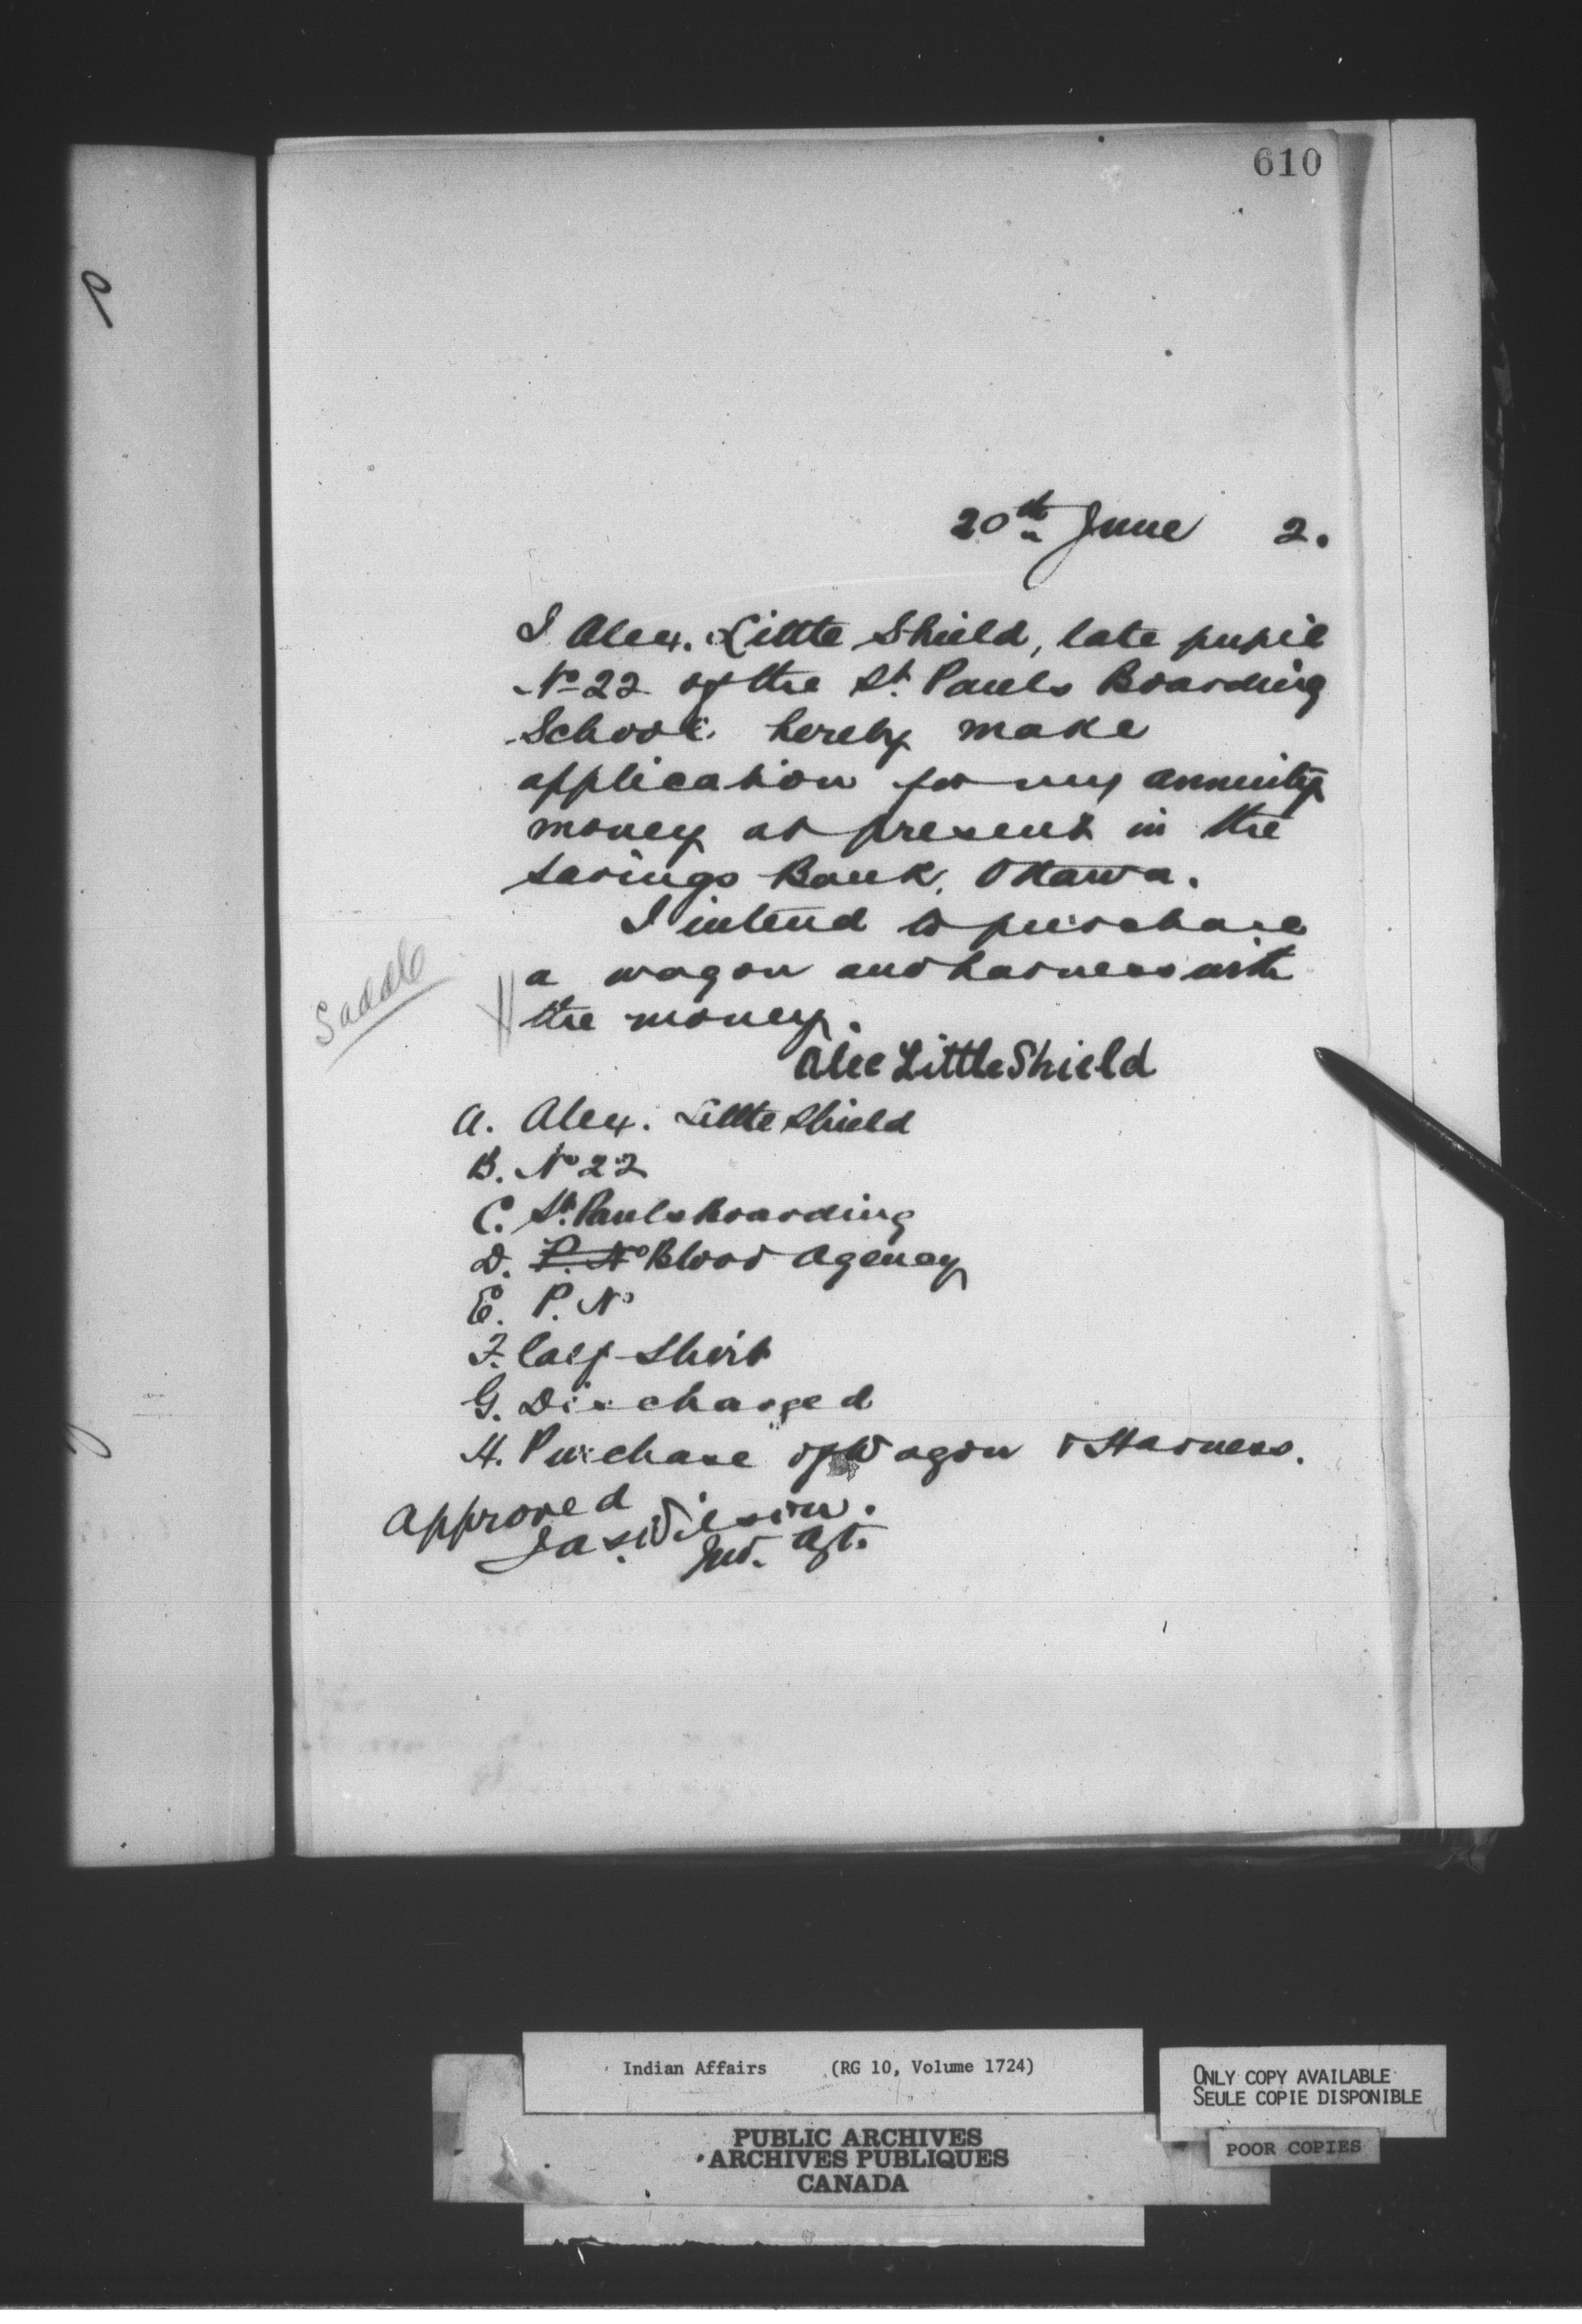 610
20th June 2.
I Alex. Little Shield, late pupil
No 22 of the St. Pauls Boarding
School hereby make
application for my annuity
money at present in the
Savings Bank, Ottawa.
I intend to purchase
a wagon and harness with
the money.
Saddle
Alec Little Shield
A. Alex. Little Shield
B. No 22
C. St. Pauls Boarding
D. P. No Blood Agency
E. P. No
F. Calf Shirt
G. Discharged
H. Purchase of Wagon & Harness.
Approved
Jas. Wilson.
Ind. Agt.
Indian Affairs (RG 10, Volume 1724)
ONLY COPY AVAILABLE
SEULE COPIE DISPONIBLE
POOR COPIES
PUBLIC ARCHIVES
ARCHIVES PUBLIQUES
CANADA